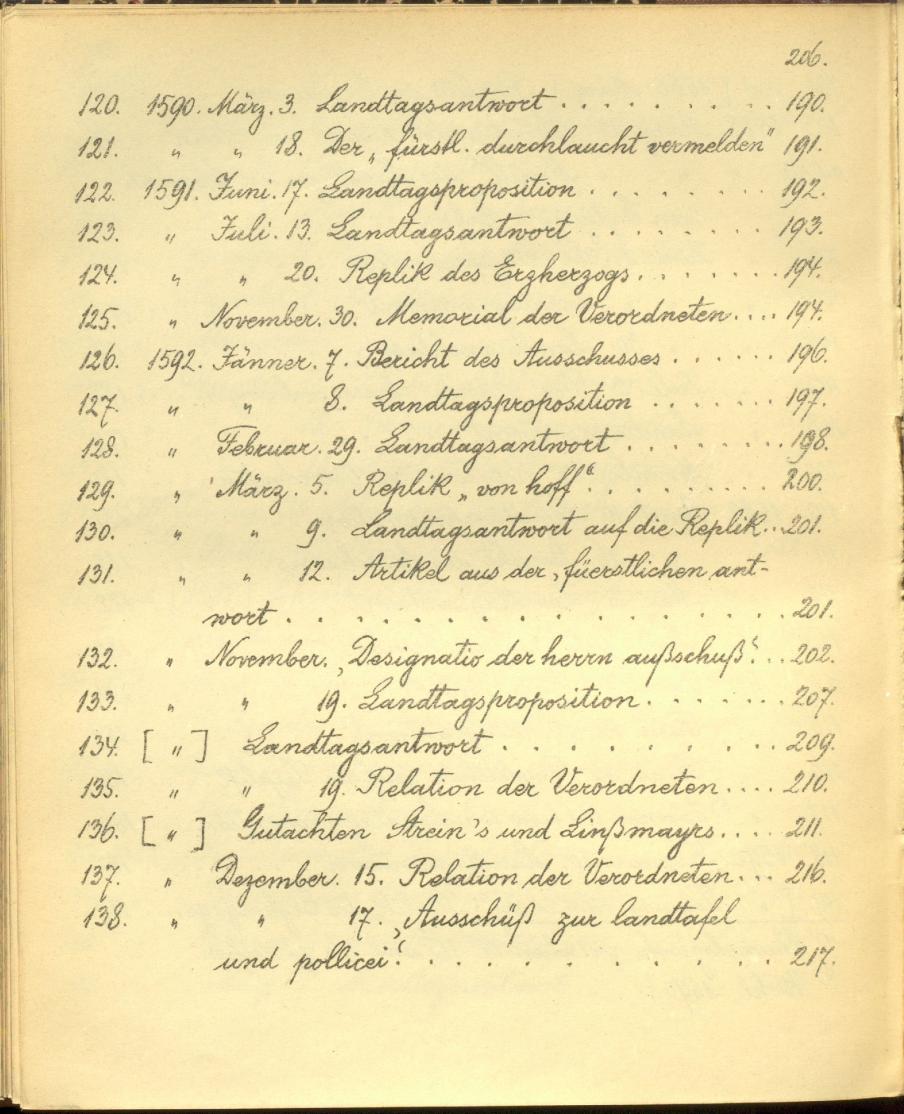 206.
120. 1590. März. 3. Landtagsantwort . . . . . . . . . . 190.
121. " " 18. Der „fürstl. durchlaucht vermelden" 191.
122. 1591. Juni. 17. Landtagsproposition . . . . . . . . 192.
123. " Juli. 13. Landtagsantwort . . . . . . . . 193.
124. " " 20. Replik des Erzherzogs . . . . . . . 194.
125. " November. 30. Memorial der Verordneten . . . . 194.
126. 1592. Jänner. 7. Bericht des Ausschusses . . . . . . 196.
127. " " 8. Landtagsproposition . . . . . . . 197.
128. " Februar. 29. Landtagsantwort . . . . . . . . 198.
129. " März. 5. Replik „von hoff“ . . . . . . . . . 200.
130. " " 9. Landtagsantwort auf die Replik . . 201.
131. " " 12. Artikel aus der ‚füerstlichen ant-
wort . . . . . . . . . . . . . . . . . . 201.
132. " November. ‚Designatio der herrn außschuß‘. . . 202.
133. " " 19. Landtagsproposition . . . . . . . 207.
134. [ " ] Landtagsantwort . . . . . . . . . 209.
135. " " 19. Relation der Verordneten . . . . 210.
136. [ " ] Gutachten Strein's und Linßmayrs . . . . 211.
137. " Dezember. 15. Relation der Verordneten . . . 216.
138. " " 17. ‚Ausschüß zur landtafel
und pollicei‘. . . . . . . . . . . . . 217.